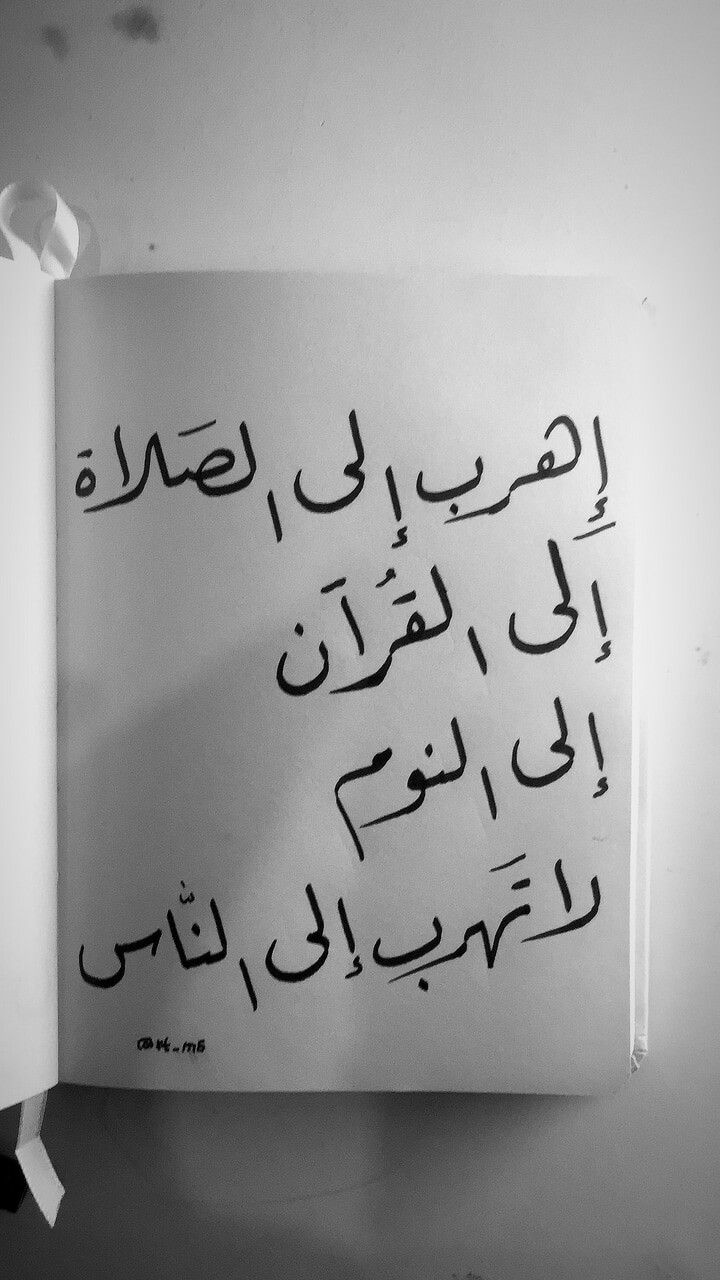 إِهرب إلى الصَلاة
إلى القُرآن
إلى النوم
لا تَهرب إلى النَّاس